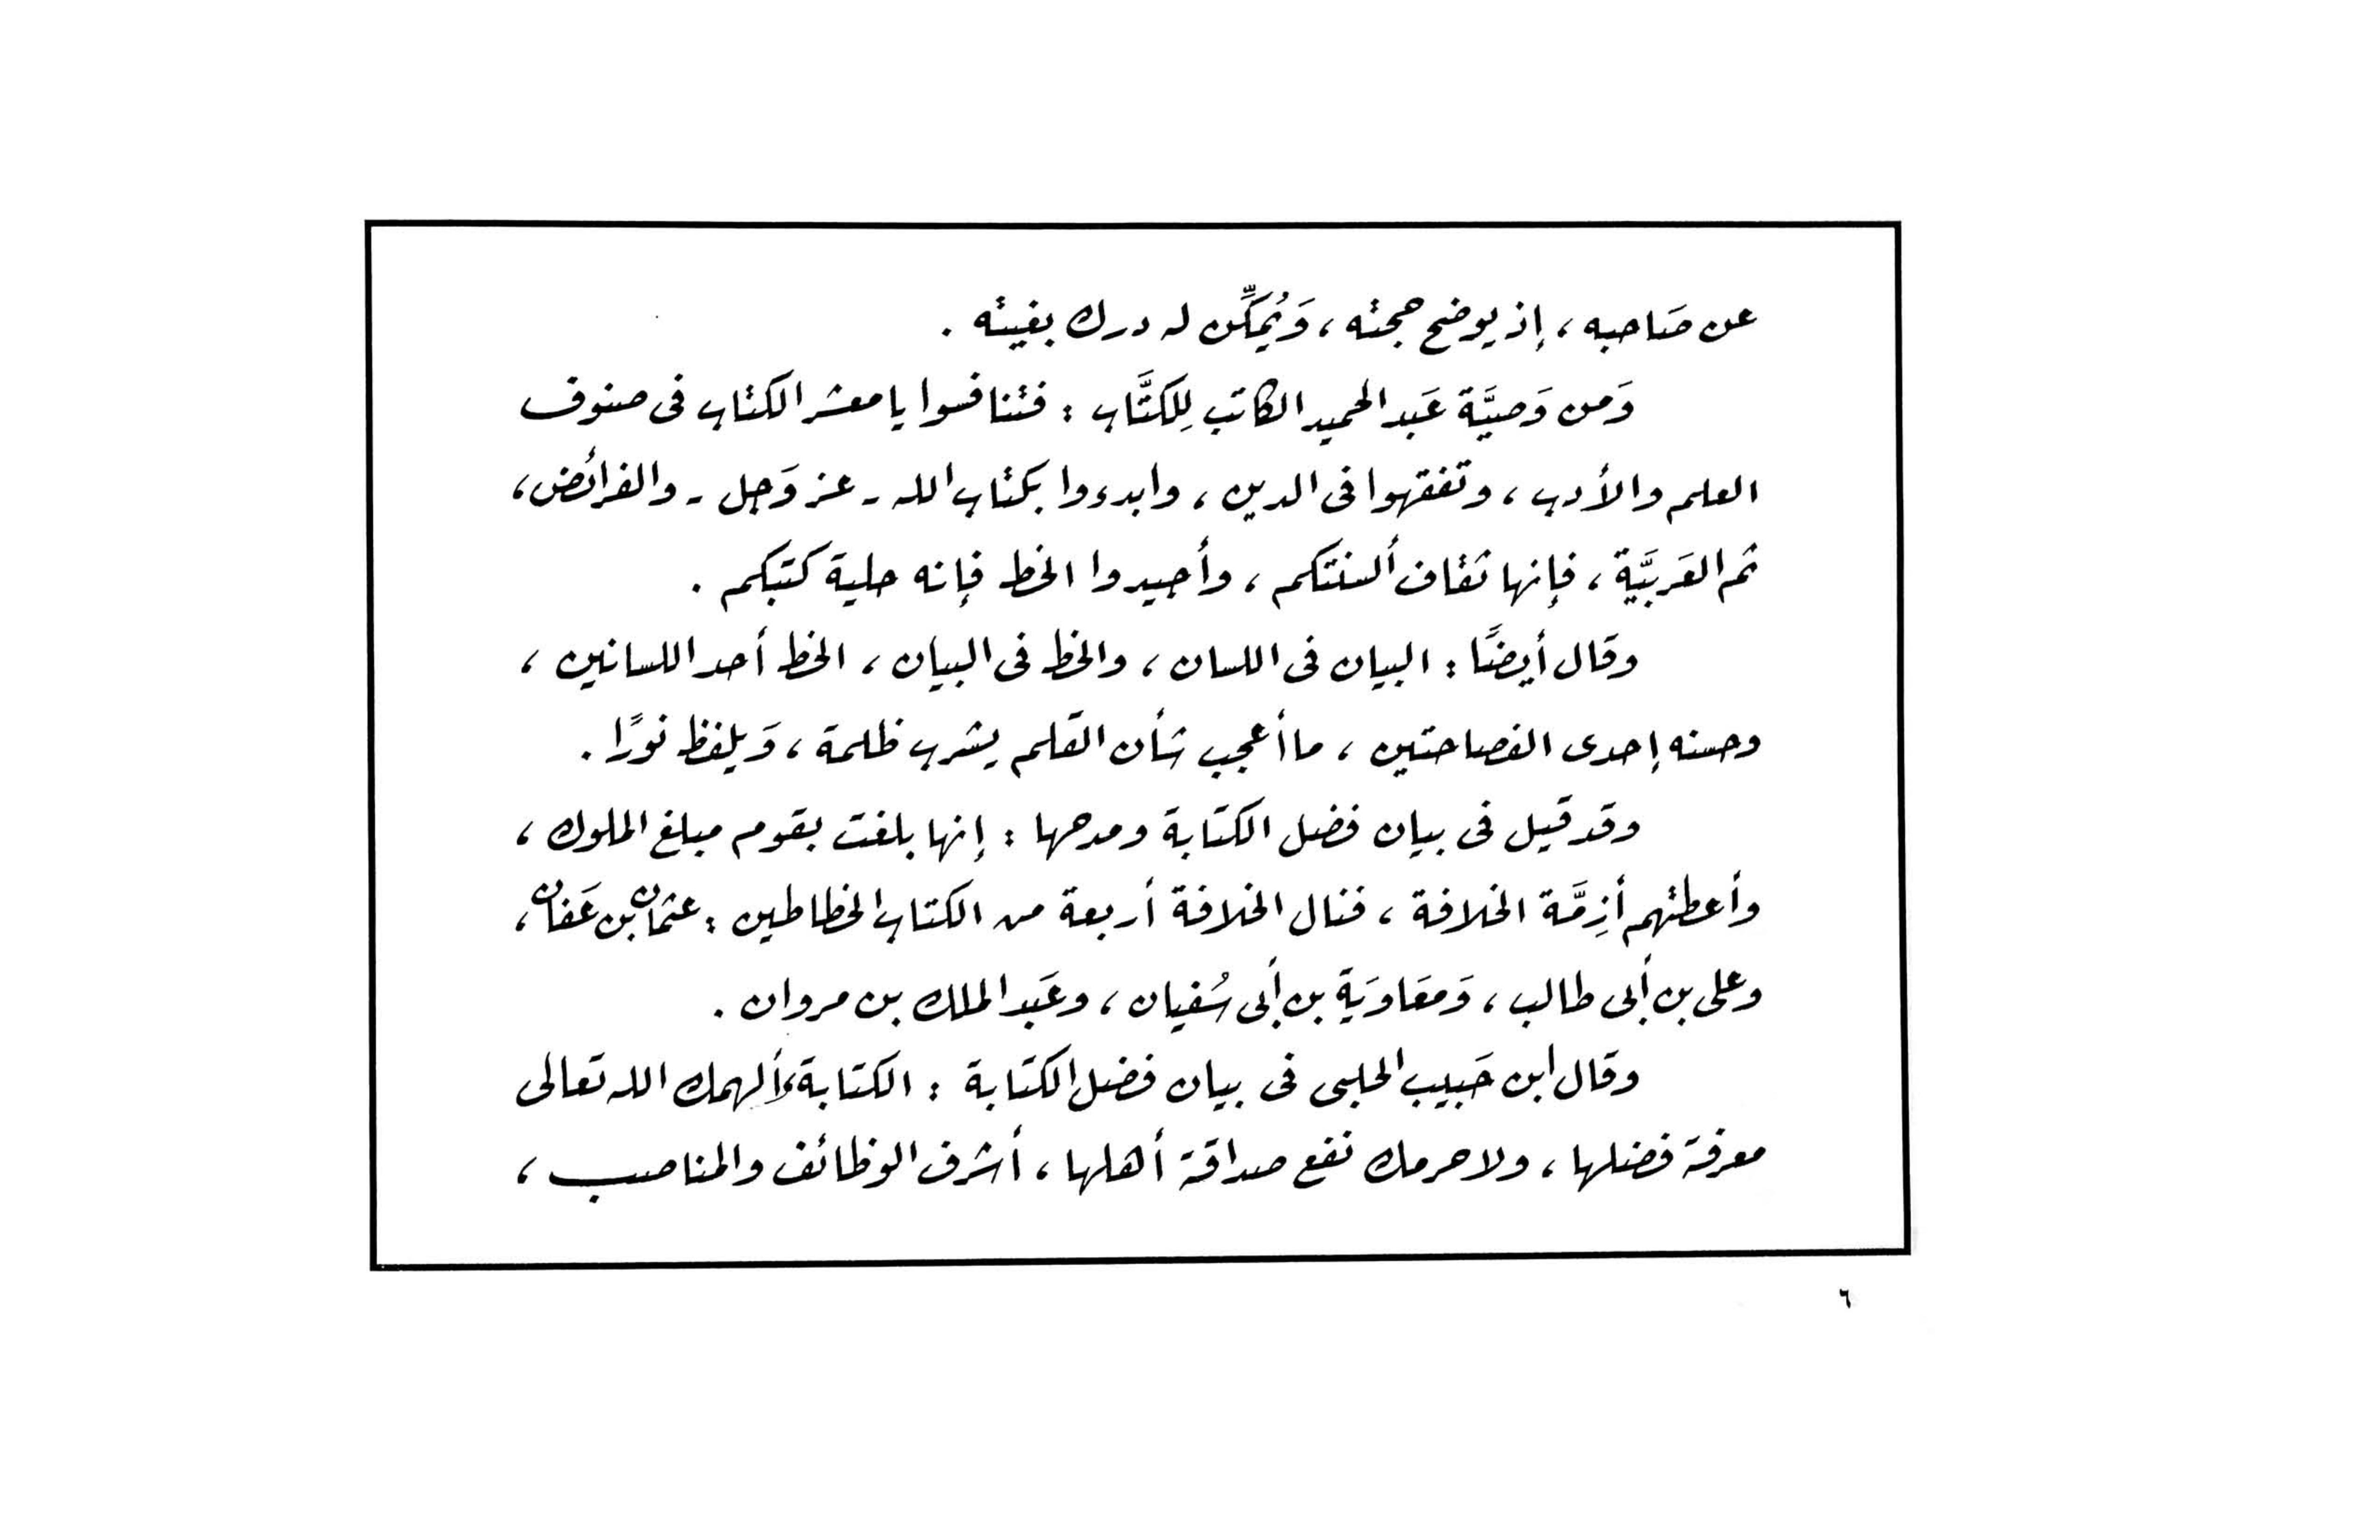 عن صَاحبه ، إذ يوضح حجته ، وَيُمَكِّن له درك بغيته .
وَمن وَصيَّة عَبد الحميد الكاتب لِلكتَّاب : فتنافسوا يا معشر الكتاب فى صنوف
العلم والأدب ، وتفقهوا فى الدين ، وابدءوا بكتاب الله - عز وَجل - والفرائض ،
ثم العَربَيَّة ، فإنها ثقاف ألسنتكم ، وأجيدوا الخط فإنه حلية كتبكم .
وقَال أيضًا : البيان فى اللسان ، والخط فى البيان ، الخط أحد اللسانين ،
وحسنه إحدى الفصاحتين ، ما أعجب شأن القَلم يشرب ظلمة ، وَيلفظ نورًا .
وقد قيل فى بيان فضل الكتابة ومدحها : إنها بلغت بقوم مبلغ الملوك ،
وأعطتهم أزِمَّة الخلافة ، فنال الخلافة أربعة من الكتاب الخطاطين : عثمان بن عَفان ،
وعلى بن أبى طالب ، وَمعَاويَة بن أبى سُفيان ، وعَبد الملك بن مروان .
وقَال ابن حَبيب الحلبى فى بيان فضل الكتَابة : الكتَابة ، ألهمك الله تعَالى
معرفة فضلها ، ولا حرمك نفع صداقة أهلها ، أشرف الوظائف والمناصب ،
٦